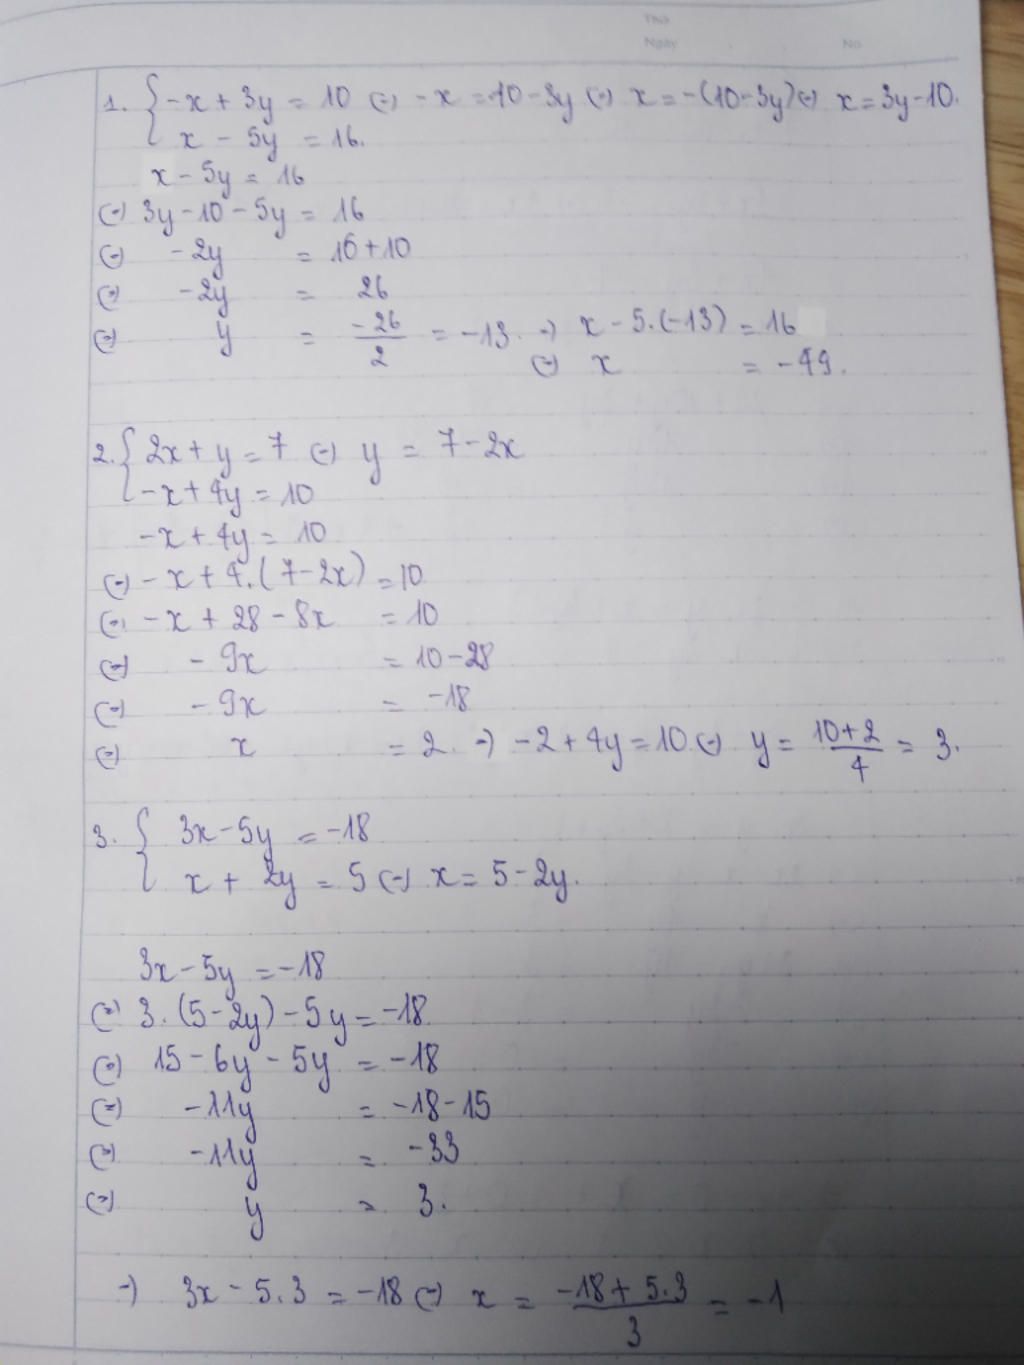 Thứ
Ngày No
1. { -x + 3y = 10 (=) -x = 10 - 3y (=) x = -(10-3y) (=) x = 3y - 10.
x - 5y = 16.
x - 5y = 16
(=) 3y - 10 - 5y = 16
(=) -2y = 16 + 10
(=) -2y = 26
(=) y = -26/2 = -13. =) x - 5.(-13) = 16
(=) x = -49.
2. { 2x + y = 7 (=) y = 7 - 2x
-x + 4y = 10
-x + 4y = 10
(=) -x + 4.(7-2x) = 10
(=) -x + 28 - 8x = 10
(=) -9x = 10 - 28
(=) -9x = -18
(=) x = 2. =) -2 + 4y = 10 (=) y = 10+2/4 = 3.
3. { 3x - 5y = -18
x + 2y = 5 (=) x = 5 - 2y.
3x - 5y = -18
(=) 3.(5-2y) - 5y = -18
(=) 15 - 6y - 5y = -18
(=) -11y = -18 - 15
(=) -11y = -33
(=) y = 3.
=) 3x - 5.3 = -18 (=) x = -18 + 5.3/3 = -1